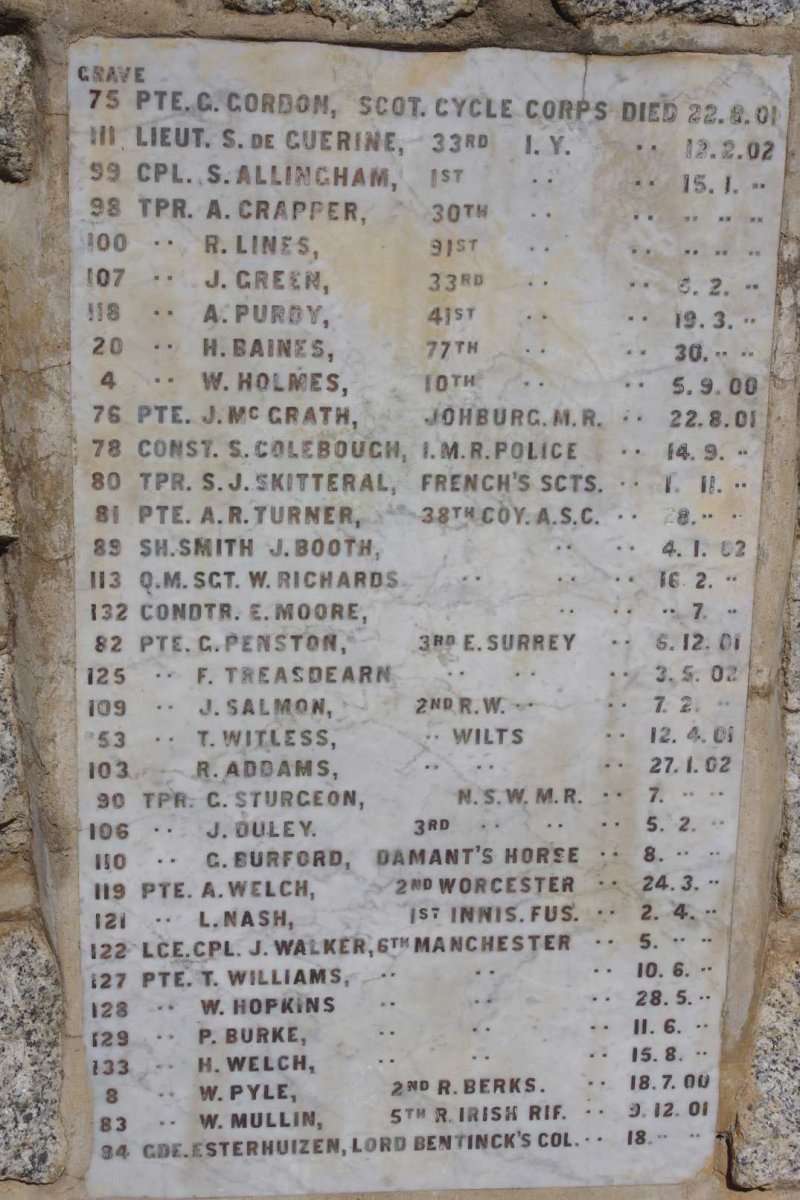 GRAVE
75 PTE. G. GORDON, SCOT. CYCLE CORPS DIED 22.8.01
111 LIEUT. S. DE GUERINE, 33RD I.Y. ·· 12.2.02
99 CPL. S. ALLINGHAM, 1ST ·· ·· 15.1. ··
98 TPR. A. CRAPPER, 30TH ·· ·· ·· ·· ··
100 ·· R. LINES, 91ST ·· ·· ·· ·· ··
107 ·· J. GREEN, 33RD ·· ·· 6.2. ··
118 ·· A. PURDY, 41ST ·· ·· 19.3. ··
20 ·· H. BAINES, 77TH ·· ·· 30. ·· ··
4 ·· W. HOLMES, 10TH ·· ·· 5.9.00
76 PTE. J. MC GRATH, JOHBURG. M.R. ·· 22.8.01
78 CONST. S. COLEBOUGH, I.M.R. POLICE ·· 14.9. ··
80 TPR. S.J. SKITTERAL, FRENCH'S SCTS. ·· 1. 11. ··
81 PTE. A.R. TURNER, 38TH COY. A.S.C. ·· 28. ·· ··
89 SH. SMITH J. BOOTH, ·· ·· 4.1.02
113 Q.M. SGT. W. RICHARDS ·· ·· 16.2. ··
132 CONDTR. E. MOORE, ·· ·· ·· 7. ··
82 PTE. G. PENSTON, 3RD E. SURREY ·· 6.12.01
125 ·· F. TREASDEARN ·· ·· ·· 3.5.02
109 ·· J. SALMON, 2ND R.W. ·· ·· 7.2. ··
53 ·· T. WITLESS, ·· WILTS ·· 12.4.01
103 R. ADDAMS, ·· ·· ·· 27.1.02
90 TPR. G. STURGEON, N.S.W.M.R. ·· 7. ·· ··
106 ·· J. DULEY. 3RD ·· ·· ·· 5.2. ··
110 ·· G. BURFORD, DAMANT'S HORSE ·· 8. ·· ··
119 PTE. A. WELCH, 2ND WORCESTER ·· 24.3. ··
121 ·· L. NASH, 1ST INNIS. FUS. ·· 2.4. ··
122 LCE. CPL. J. WALKER, 6TH MANCHESTER ·· 5. ·· ··
127 PTE. T. WILLIAMS, ·· ·· ·· 10.6. ··
128 ·· W. HOPKINS ·· ·· ·· 28.5. ··
129 ·· P. BURKE, ·· ·· ·· 11.6. ··
133 ·· H. WELCH, ·· ·· ·· 15.8. ··
8 ·· W. PYLE, 2ND R. BERKS. ·· 18.7.00
83 ·· W. MULLIN, 5TH R. IRISH RIF. ·· 9.12.01
94 GDE. ESTERHUIZEN, LORD BENTINCK'S COL. ·· 18. ·· ··